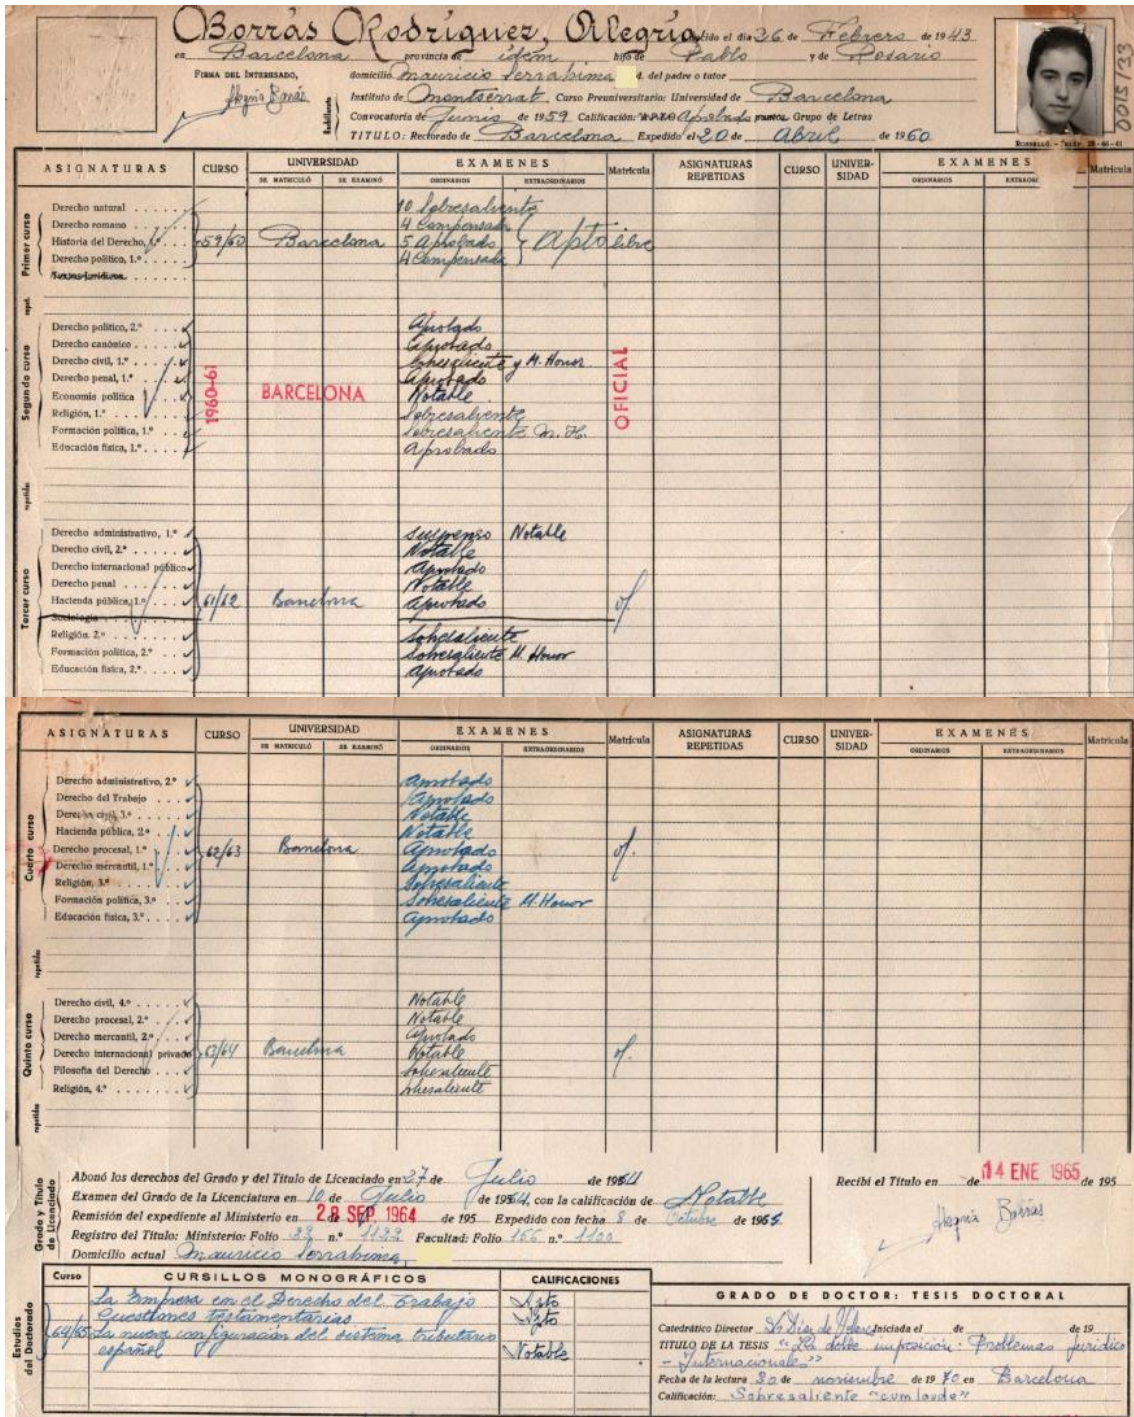 Borrás Rodríguez, Alegría nacido el día 26 de Febrero de 1943
en Barcelona provincia de ídem hijo de Pablo y de Rosario
FIRMA DEL INTERESADO, domicilio Mauricio Serrahima d. del padre o tutor
Alegría Borrás
Bachillerato
Instituto de Montserrat Curso Preuniversitario: Universidad de Barcelona
Convocatoria de Junio de 1959 Calificación: APTO Aprobado puntos Grupo de Letras
TITULO: Rectorado de Barcelona Expedido el 20 de Abril de 1960
0015/33
ASIGNATURAS CURSO UNIVERSIDAD EXAMENES Matrícula ASIGNATURAS REPETIDAS CURSO UNIVER-SIDAD EXAMENES Matrícula
SE MATRICULÓ SE EXAMINÓ ORDINARIOS EXTRAORDINARIOS ORDINARIOS
Primer curso
Derecho natural 10 Sobresaliente
Derecho romano 4 Compensada
Historia del Derecho, 59/60 Barcelona 5 Aprobado Apto libre
Derecho político, 1.º 4 Compensada
Textos jurídicos
Segundo curso
Derecho político, 2.º Aprobado
Derecho canónico Aprobado
Derecho civil, 1.º Sobresaliente y M. Honor
Derecho penal, 1.º Aprobado
Economía política 1960-61 BARCELONA Notable OFICIAL
Religión, 1.º Sobresaliente
Formación política, 1.º Sobresaliente M. H.
Educación física, 1.º Aprobado
repetidas
Tercer curso
Derecho administrativo, 1.º Suspenso Notable
Derecho civil, 2.º Notable
Derecho internacional público Aprobado
Derecho penal Notable
Hacienda pública, 1.º 61/62 Barcelona Aprobado of.
Sociología
Religión, 2.º Sobresaliente
Formación política, 2.º Sobresaliente M. Honor
Educación física, 2.º Aprobado
ASIGNATURAS CURSO UNIVERSIDAD EXAMENES Matrícula ASIGNATURAS REPETIDAS CURSO UNIVER-SIDAD EXAMENES Matrícula
SE MATRICULÓ SE EXAMINÓ ORDINARIOS EXTRAORDINARIOS ORDINARIOS EXTRAORDINARIOS
Cuarto curso
Derecho administrativo, 2.º Aprobado
Derecho del Trabajo Aprobado
Derecho civil, 3.º Notable
Hacienda pública, 2.º Notable
Derecho procesal, 1.º 62/63 Barcelona Aprobado of.
Derecho mercantil, 1.º Aprobado
Religión, 3.º Sobresaliente
Formación política, 3.º Sobresaliente M. Honor
Educación física, 3.º Aprobado
repetidas
Quinto curso
Derecho civil, 4.º Notable
Derecho procesal, 2.º Notable
Derecho mercantil, 2.º Aprobado
Derecho internacional privado 63/64 Barcelona Notable of.
Filosofía del Derecho Sobresaliente
Religión, 4.º Sobresaliente
repetidas
Grado y Título de Licenciado
Abonó los derechos del Grado y del Título de Licenciado en 27 de Julio de 1964
Examen del Grado de la Licenciatura en 10 de Julio de 1964, con la calificación de Notable
Remisión del expediente al Ministerio en 28 SEP. 1964 de 195 Expedido con fecha 8 de Octubre de 1964
Registro del Título: Ministerio: Folio n.º Facultad: Folio 166 n.º 1100
Domicilio actual Mauricio Serrahima,
Recibí el Título en de 14 ENE 1965 de 195
Alegría Borrás
Estudios del Doctorado
Curso CURSILLOS MONOGRÁFICOS CALIFICACIONES
La Empresa en el Derecho del Trabajo Apto
Cuestiones testamentarias Apto
64/65 La nueva configuración del sistema tributario
español Notable
GRADO DE DOCTOR: TESIS DOCTORAL
Catedrático Director Dr Díez de Velasco Iniciada el de de 19
TITULO DE LA TESIS "La doble imposición: Problemas Jurídico
- Internacionales"
Fecha de la lectura 30 de noviembre de 1970 en Barcelona
Calificación: Sobresaliente "cum laude"